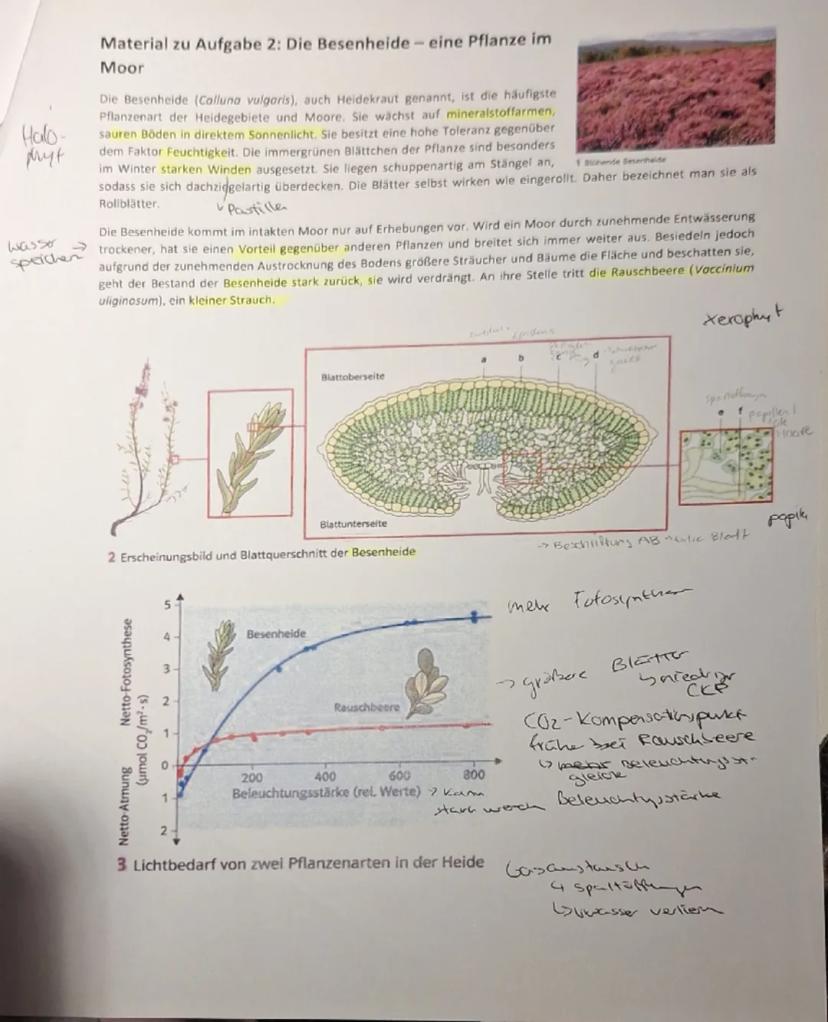 Material zu Aufgabe 2: Die Besenheide – eine Pflanze im
Moor
Die Besenheide (Calluna vulgaris), auch Heidekraut genannt, ist die häufigste
Pflanzenart der Heidegebiete und Moore. Sie wächst auf mineralstoffarmen,
sauren Böden in direktem Sonnenlicht. Sie besitzt eine hohe Toleranz gegenüber
dem Faktor Feuchtigkeit. Die immergrünen Blättchen der Pflanze sind besonders
im Winter starken Winden ausgesetzt. Sie liegen schuppenartig am Stängel an,
sodass sie sich dachziegelartig überdecken. Die Blätter selbst wirken wie eingerollt. Daher bezeichnet man sie als
Rollblätter.
1 Blühende Besenheide
Halo-
phyt
Die Besenheide kommt im intakten Moor nur auf Erhebungen vor. Wird ein Moor durch zunehmende Entwässerung
trockener, hat sie einen Vorteil gegenüber anderen Pflanzen und breitet sich immer weiter aus. Besiedeln jedoch
aufgrund der zunehmenden Austrocknung des Bodens größere Sträucher und Bäume die Fläche und beschatten sie,
geht der Bestand der Besenheide stark zurück, sie wird verdrängt. An ihre Stelle tritt die Rauschbeere (Vaccinium
uliginosum), ein kleiner Strauch.
wasser →
speichern
xerophyt
a b c d
Blattoberseite
e f
Blattunterseite
2 Erscheinungsbild und Blattquerschnitt der Besenheide
Netto-Atmung Netto-Fotosynthese
(µmol CO₂/m²·s)
5
4
3
2
1
0
1
2
Besenheide
Rauschbeere
200 400 600 800
Beleuchtungsstärke (rel. Werte)
3 Lichtbedarf von zwei Pflanzenarten in der Heide
mehr Fotosynthese
→ größere Blätter
CO2-Kompensationspunkt
frühe bei Rauschbeere
gleiche
Beleuchtungsstärke
Gasaustausch
↳ Spaltöffnungen
↳ wasser